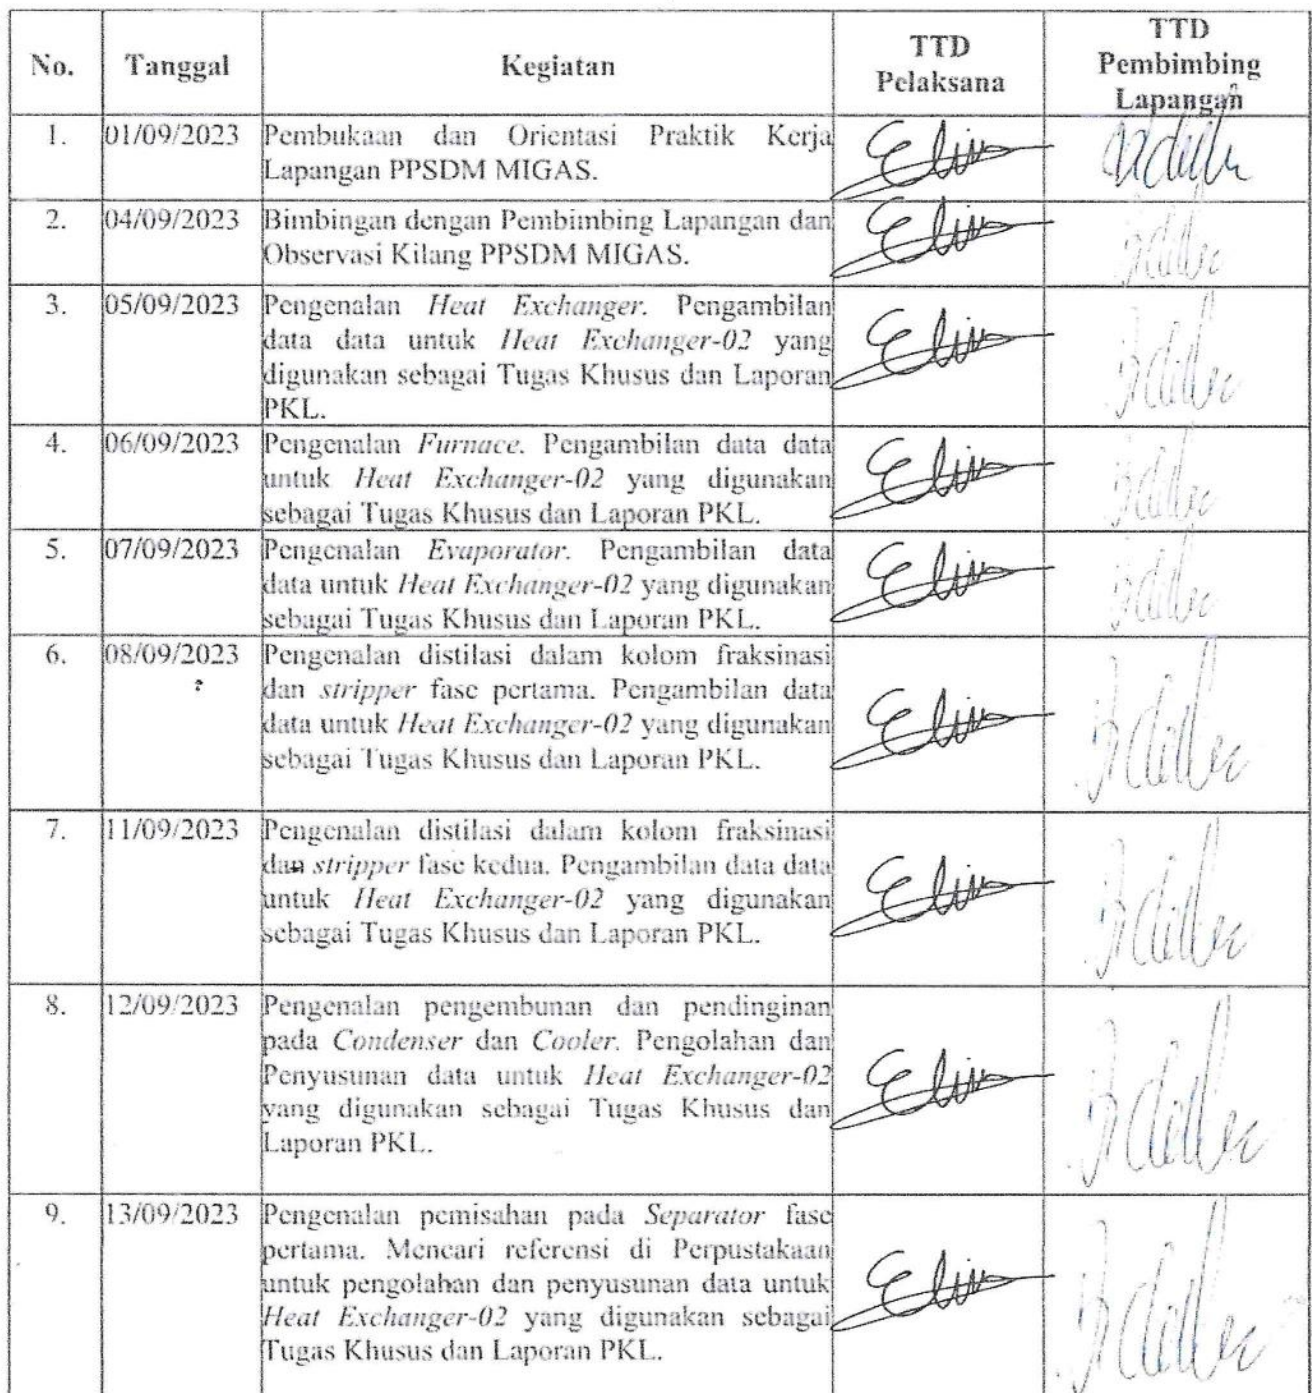 No. Tanggal Kegiatan TTD Pelaksana TTD Pembimbing Lapangan
1. 01/09/2023 Pembukaan dan Orientasi Praktik Kerja
Lapangan PPSDM MIGAS.
2. 04/09/2023 Bimbingan dengan Pembimbing Lapangan dan
Observasi Kilang PPSDM MIGAS.
3. 05/09/2023 Pengenalan Heat Exchanger. Pengambilan
data data untuk Heat Exchanger-02 yang
digunakan sebagai Tugas Khusus dan Laporan
PKL.
4. 06/09/2023 Pengenalan Furnace. Pengambilan data data
untuk Heat Exchanger-02 yang digunakan
sebagai Tugas Khusus dan Laporan PKL.
5. 07/09/2023 Pengenalan Evaporator. Pengambilan data
data untuk Heat Exchanger-02 yang digunakan
sebagai Tugas Khusus dan Laporan PKL.
6. 08/09/2023 Pengenalan distilasi dalam kolom fraksinasi
dan stripper fase pertama. Pengambilan data
data untuk Heat Exchanger-02 yang digunakan
sebagai Tugas Khusus dan Laporan PKL.
7. 11/09/2023 Pengenalan distilasi dalam kolom fraksinasi
dan stripper fase kedua. Pengambilan data data
untuk Heat Exchanger-02 yang digunakan
sebagai Tugas Khusus dan Laporan PKL.
8. 12/09/2023 Pengenalan pengembunan dan pendinginan
pada Condenser dan Cooler. Pengolahan dan
Penyusunan data untuk Heat Exchanger-02
yang digunakan sebagai Tugas Khusus dan
Laporan PKL.
9. 13/09/2023 Pengenalan pemisahan pada Separator fase
pertama. Mencari referensi di Perpustakaan
untuk pengolahan dan penyusunan data untuk
Heat Exchanger-02 yang digunakan sebagai
Tugas Khusus dan Laporan PKL.